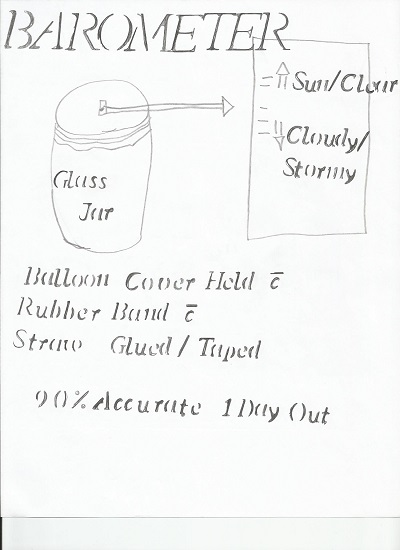 BAROMETER
Sun/Clear
Cloudy/
Stormy
Glass
Jar
Balloon Cover Held c̄
Rubber Band c̄
Straw Glued/Taped
90% Accurate 1 Day Out